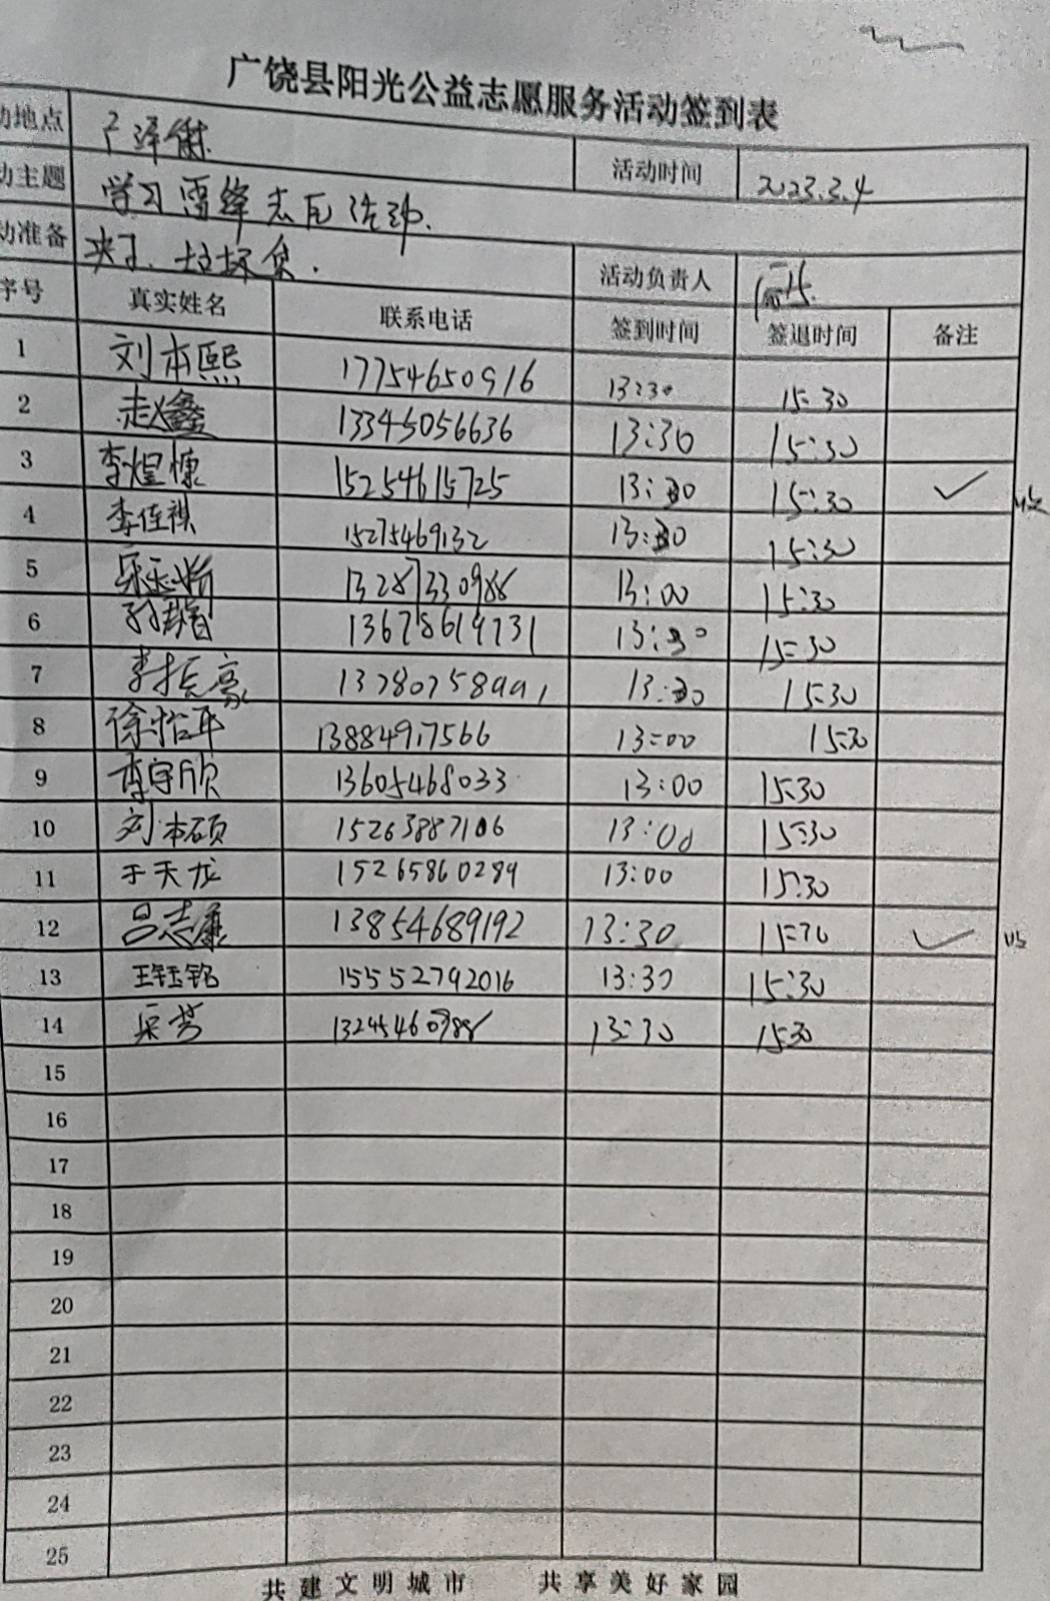 广饶县阳光公益志愿服务活动签到表
动地点 活动时间 2023.3.4
动主题 学习雷锋志愿活动.
动准备 夹子、垃圾袋. 活动负责人
序号 真实姓名 联系电话 签到时间 签退时间 备注
1 刘本熙 17754650916 13:30 15:30
2 赵鑫 13345056636 13:30 15:30
3 李煜慷 15254615725 13:30 15:30 ✓
4 李佳祺 15275469132 13:30 15:30
5 13287330988 13:00 15:30
6 13678619731 13:30 15:30
7 李振豪 13780758991 13:30 15:30
8 徐怡平 13884917566 13:00 15:30
9 李宇欣 13605468033 13:00 15:30
10 刘本硕 15263887106 13:00 15:30
11 于天龙 15265860289 13:00 15:30
12 吕志康 13854689192 13:30 15:30 ✓
13 王钰铭 15552792016 13:30 15:30
14 13245460988 13:30 15:30
15
16
17
18
19
20
21
22
23
24
25
共建文明城市 共享美好家园